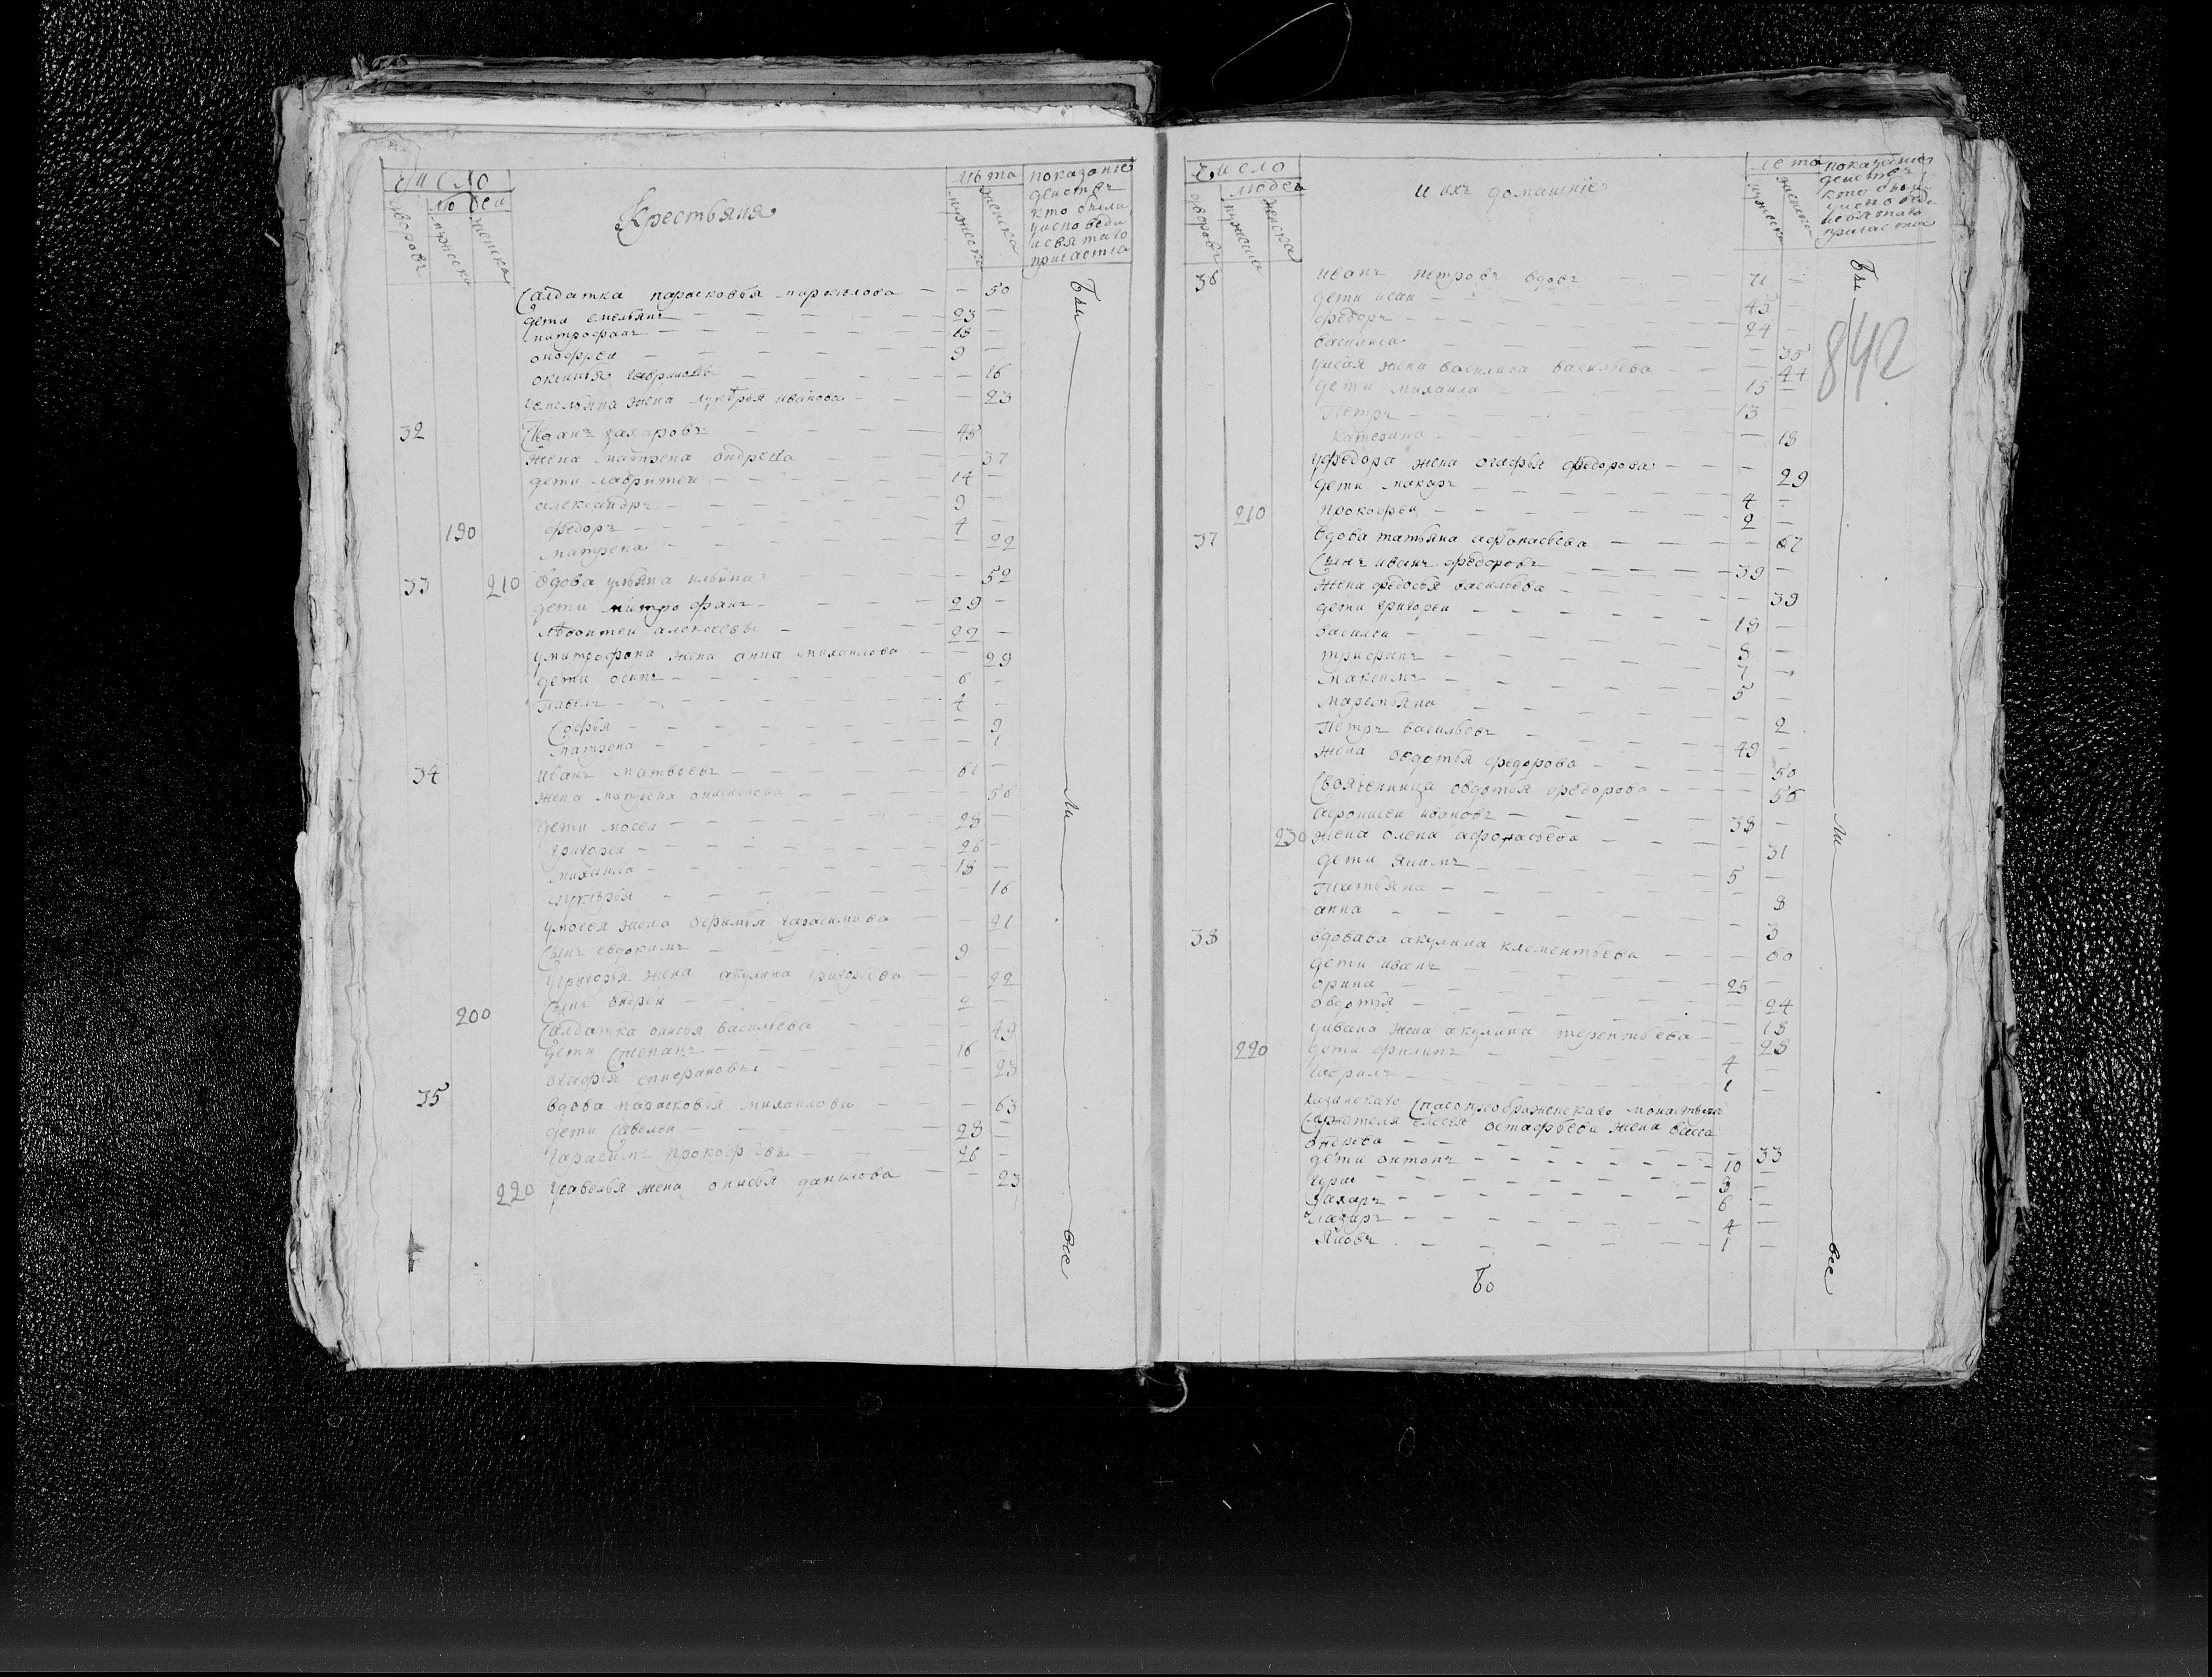 число
людеи
дворовъ
мужеска
женска
Крестьяня
лѣта
мужеска
женска
показаніе
деистъ
кто были
уисповеди
исвятаго
причастіа
Салдатка парасковья маркѣлова — — 50
дети емельянъ — 23 —
митрофанъ — 18 —
онофреи — 9 —
— — 16
уемельяна жена лукерья иванова — — 23
32 Иванъ захаровъ — 45
жена матрена андреева — — 37
дети лаврентеи — 14 —
александръ — 9 —
190 федоръ — 4 —
матрена — — 22
33 210 вдова ульяна ильина — — 52
дети митрофанъ — 29 —
леонтеи алексеевы — 22 —
умитрофана жена анна михаилова — — 29
дети осипъ — 6 —
павелъ — 4 —
софья — — 9
матрена — — 1
34 иванъ матвеевъ — 61 —
жена матрена — — 56
дети мосеи — 28 —
григореи — 26 —
михаила — 18 —
лукерья — — 16
умосея жена офимья гарасимова — — 21
сынъ евдокимъ — 9 —
уГригорья жена акулина григорьева — — 22
200 сынъ андреи — 2 —
Салдатка онисья васильева — — 49
дети Степанъ — 16 —
огафья — — 23
35 вдова парасковья михаилова — — 63
дети савелеи — 28 —
гарасимъ прокофьевы — 26 —
220 усавелья жена онисья данилова — — 23
Бы
ли
все
число
людеи
дворовъ
мужеска
женска
и ихъ домашніе
лета
мужеска
женска
показаніе
деистъ
кто были
уисповеди
исвятаго
причастіа
842
36 иванъ петровъ вдовъ — 71
дети исаи — 45 —
федоръ — 24 —
василиса — — 35
уисая жена василиса васильева — — 44
дети михаила — 15 —
Петръ — 13
катерина — — 18
уфедора жена огафья федорова — — 29
дети макаръ — 4 —
210 прокофеи — 2 —
37 вдова татьяна афонасьева — — 67
Сынъ иванъ федоровъ — 39 —
жена федосья васильева — — 39
дети григореи — 18 —
василеи — 8 —
трифанъ — 7 —
максимъ — 5 —
маремьяна — — 2
Петръ васильевъ — 49 —
жена овдотья федорова — — 50
Свояченица овдотья федорова — — 56
афонасеи ивановъ — 38 —
230 жена олена афонасьева — — 31
дети якимъ — 5 —
татьяна — — 8
анна — — 3
38 вдовава акулина клементьева — — 60
дети иванъ — 25 —
орина — — 24
овдотья — — 18
уивана жена акулина терентьева — — 28
220 дети филипъ — 4 —
гаврилъ — 1 —
казанскаго Спасопреображенскаго монастыря
Служителя елесея остафьева жена васса
андреева — — 33
дети онтонъ — 10 —
гури — 8 —
захаръ — 6 —
лазарь — 4 —
яковъ — 1 —
Бо
Бы
ли
все